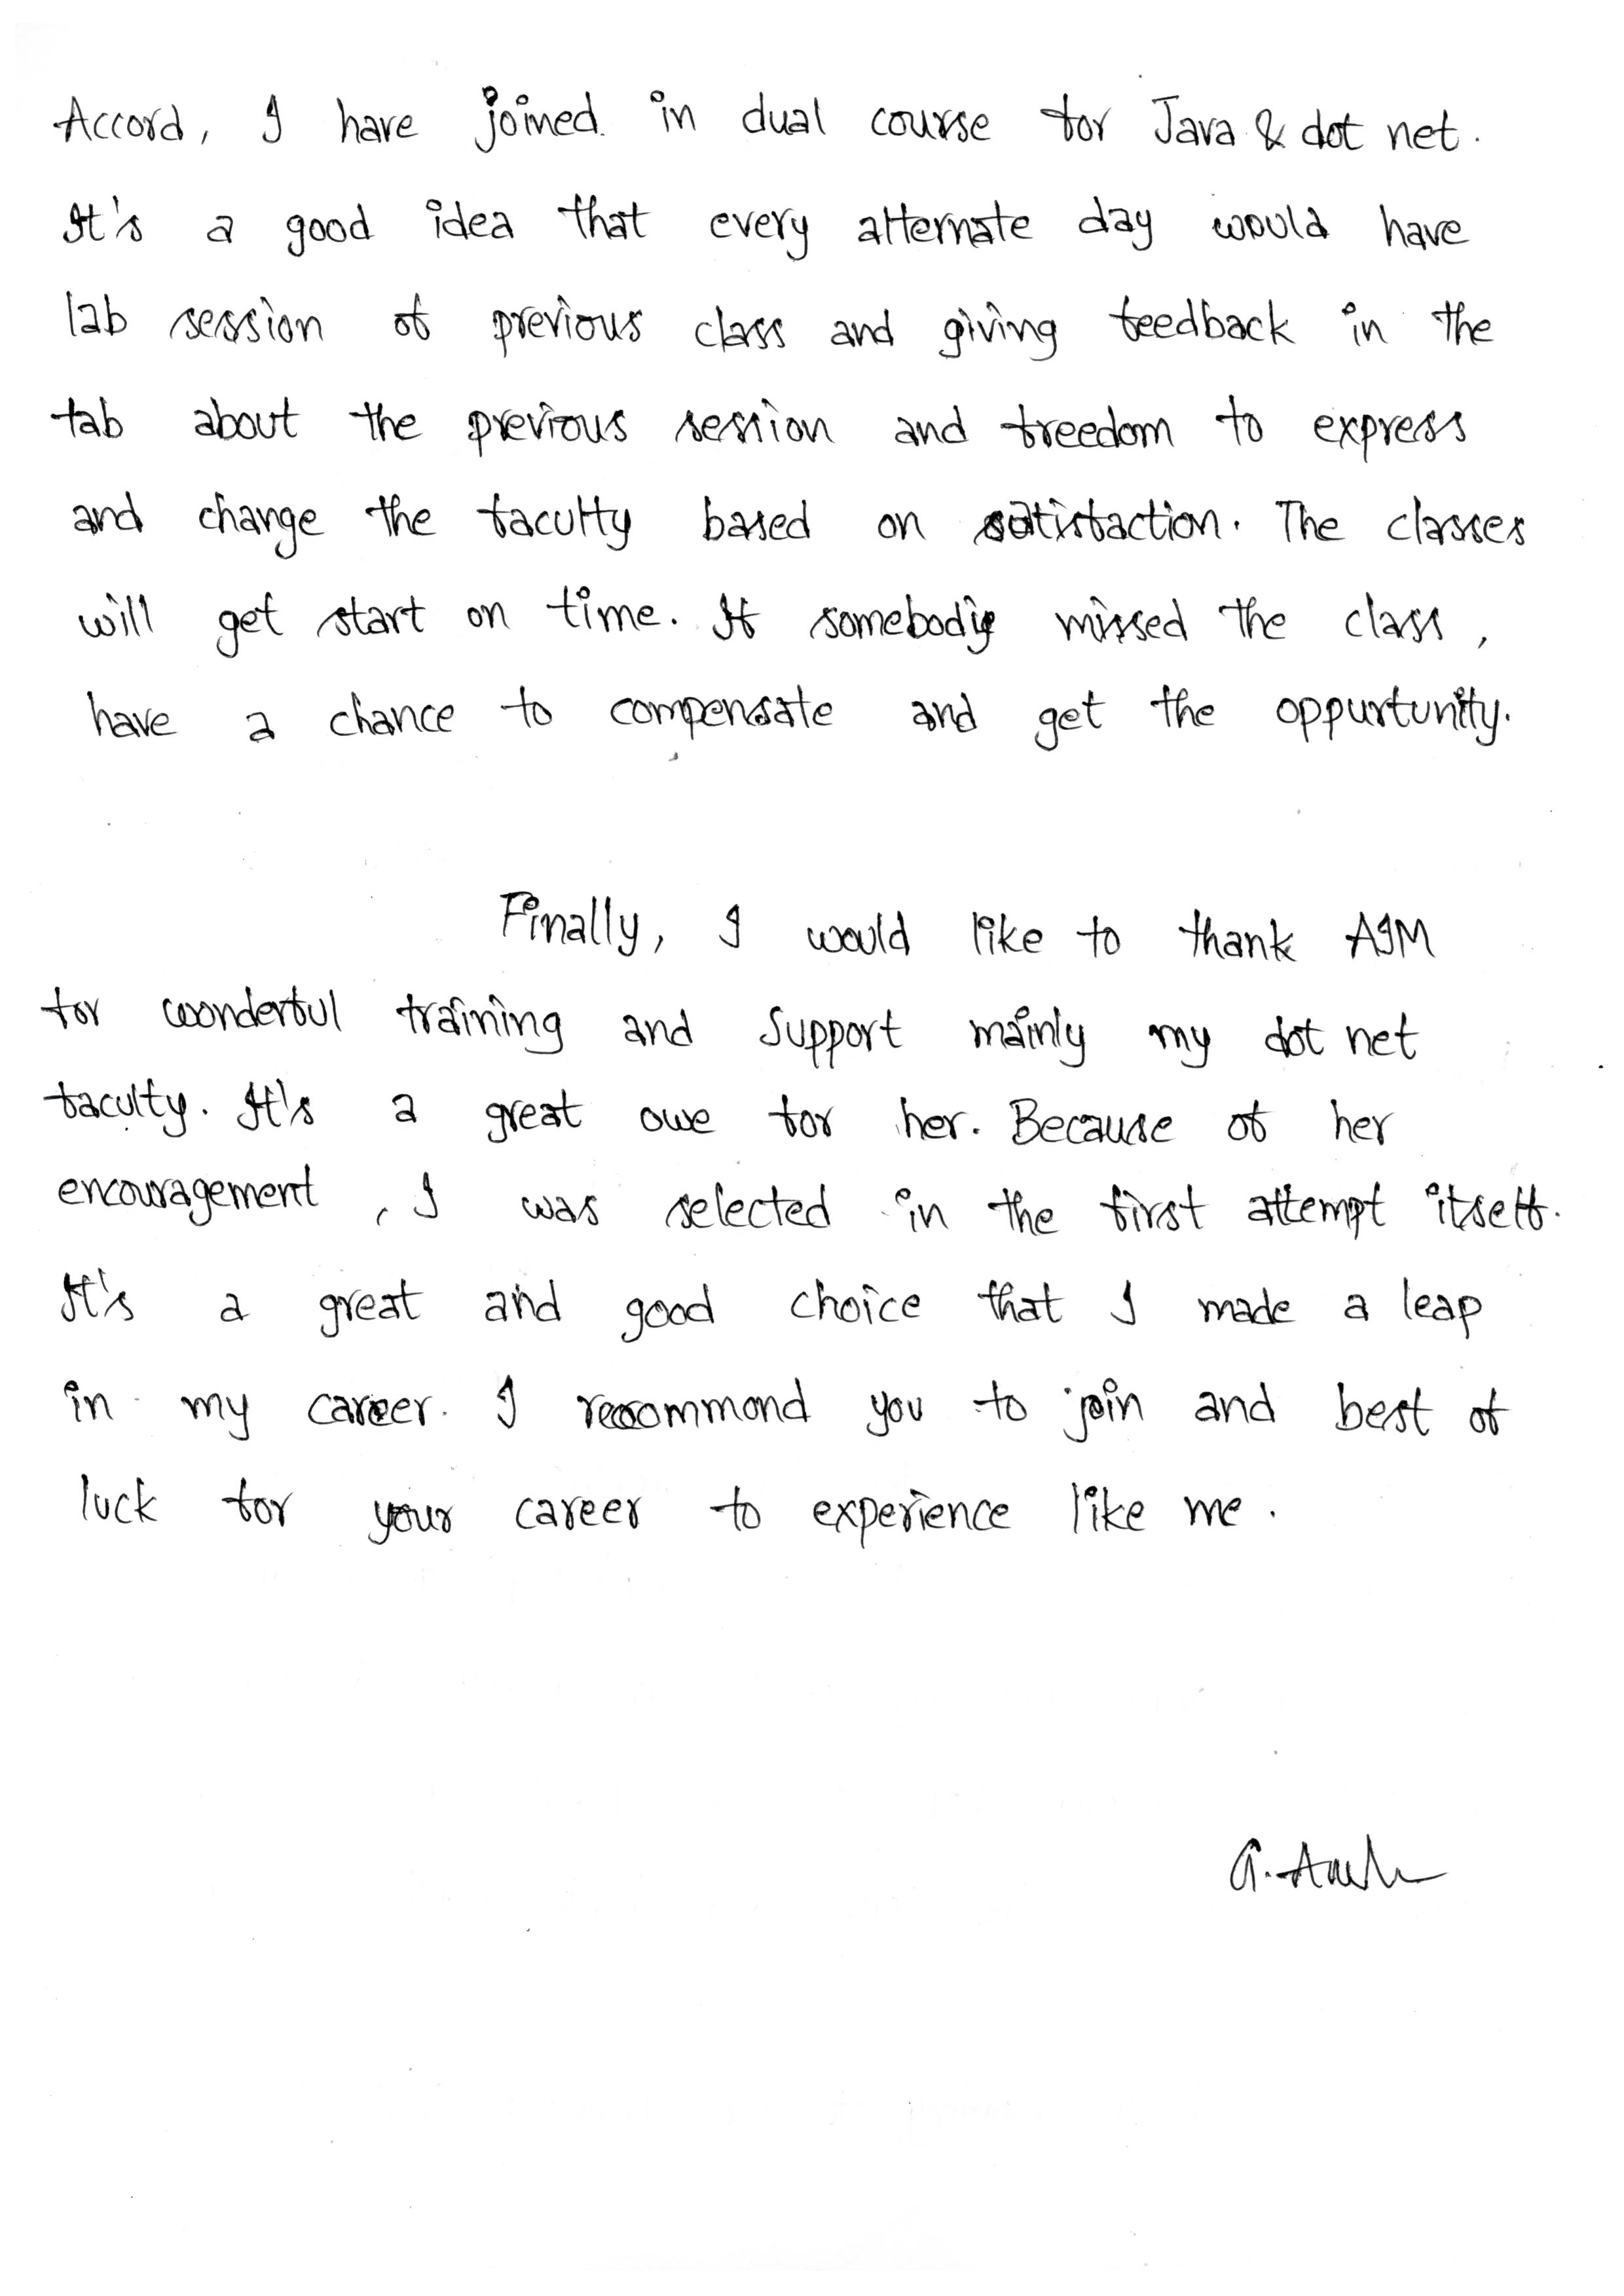 Accord, I have joined in dual course for Java & dot net.
It's a good idea that every alternate day would have
lab session of previous class and giving feedback in the
tab about the previous session and freedom to express
and change the faculty based on satisfaction. The classes
will get start on time. If somebody missed the class,
have a chance to compensate and get the oppurtunity.
Finally, I would like to thank AIM
for wonderful training and support mainly my dot net
faculty. It's a great owe for her. Because of her
encouragement, I was selected in the first attempt itself.
It's a great and good choice that I made a leap
in my career. I recommond you to join and best of
luck for your career to experience like me.